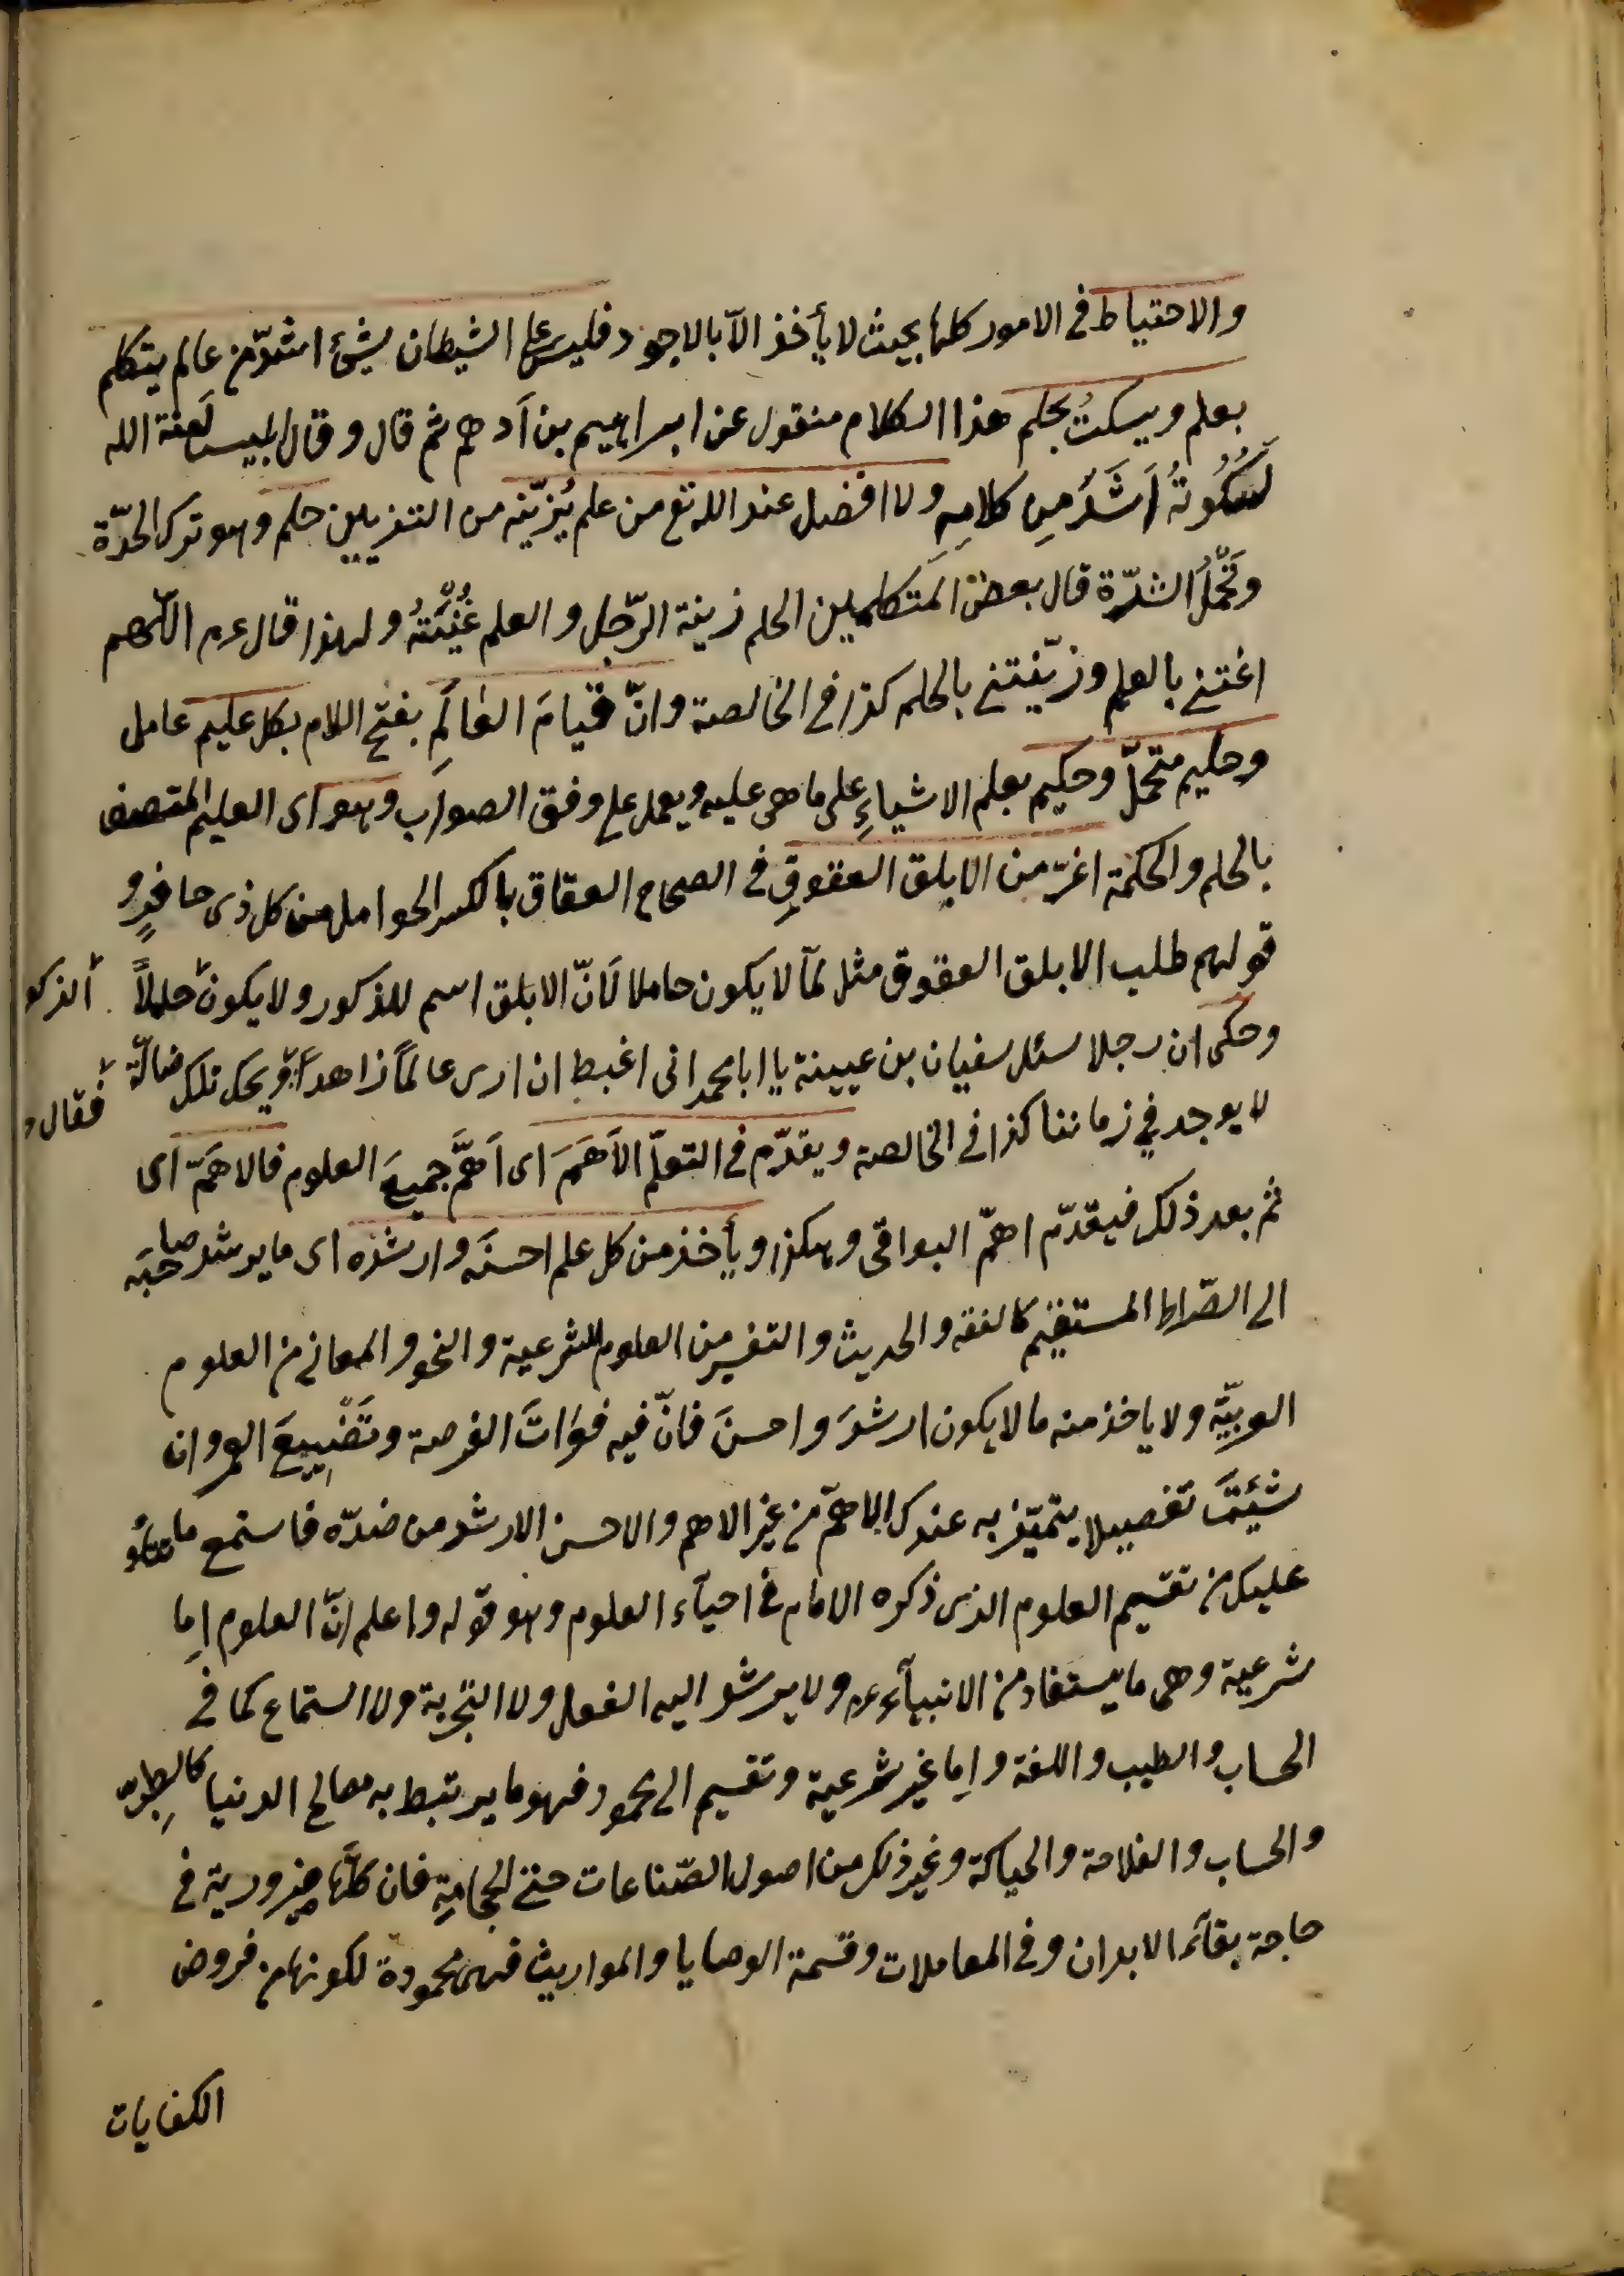 والاحتياط في الامور كلها بحيث لا يأخذ الا بالاجود فليس على الشيطان شئ اشدّ من عالم يتكلم
بعلم ويسكتُ بحلم هذا الكلام منقول عن ابراهيم بن آدهم ثم قال وقال ابليس لَعنة الله
لَسُكُوتُهُ اَشَدُّ مِن كلامِهِ ولا افضل عند الله تع من علم يُزيّنه من التزيين حلم وهو ترك الحدّة
وَتحمّلُ الشدّة قال بعض المتكلمين الحلم زينة الرّجل والعلم غُنْيَتُهُ ولهذا قال عم اللّهم
اغننى بالعلم وزيّنّنى بالحلم كذا في الخالصة وانّ قيامَ العالَمِ بفتح اللام بكل عليم عامل
وحليم متحمّل وحكيم يعلم الاشياءِ على ما هى عليه ويعمل على وفق الصواب وهو اى العليم المتصف
بالحلم والحكمة اغرّ من الابلق العقوقِ في الصحاح العقاق بالكسر الحوامل من كل ذى حافرٍ و
قولهم طلب الابلق العقوق مثل لمآ لا يكون حاملا لَانّ الابلق اسم للذكور ولا يكون حاملاً الذكو
وحكى ان رجلا سئل سفيان بن عيينة يا ابا محمد انى اغبط ان ارى عالماً زاهداً ويحك تلك ضالّة فقال
لا يوجد في زماننا كذا في الخالصة ويقدّم في التعلّم الاَهَمَ اى اَهَمَّ جميعَ العلوم فالاهَمّ اى
ثم بعد ذلك فيقدّم اهمّ البواقى وهكذا ويأخذ من كل علم احسنَه وارشدَه اى ما يرشد صاحبَه
الى الصّراط المستقيم كالفقه والحديث والتفسير من العلوم الشرعية والنحو والمعانى من العلوم
العربيّة ولا ياخذ منه ما لا يكون ارشدَ واحسنَ فانّ فيه فوَاتَ الفرصة وتَضْيِيعَ العمر وان
شئتَ تفصيلا يتميّز به عندك الاهمّ من غير الاهم والاحسن الارشد من ضدّه فاستمع ما نتلو
عليك من تقسيم العلوم الذى ذكره الامام في احيآء العلوم وهو قوله واعلم انّ العلوم اِما
شرعية وهى ما يستفاد من الانبيآء عم ولا يرشد اليه العقل ولا التجربة ولا الستماع كما في
الحساب والطيب واللغة واِما غير شرعية وتقسيم الى محمود فهو ما يرتبط به مصالح الدنيا كالطِبّ
والحساب والفلاحة والحياكة وغير ذلك من اصول الصّناعات حتى الحجامةِ فان كلّها ضرورية في
حاجة بقآئه الابدان وفي المعاملات وقسمة الوصايا والمواريث فهى محمودة لكونها من فروض
الكفايات